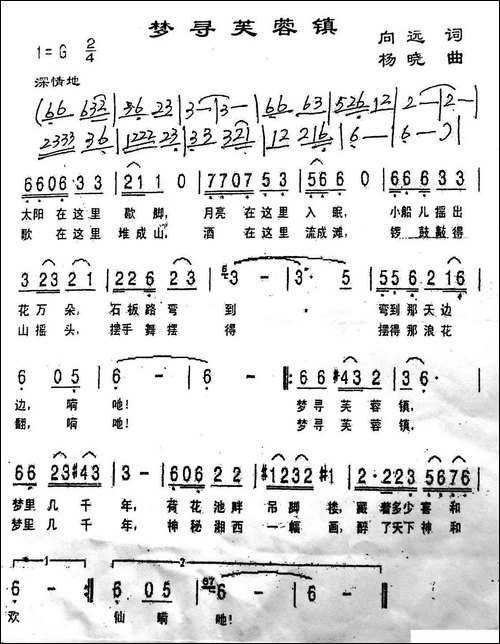 梦寻芙蓉镇
1=G 2/4
向远 词
杨晓 曲
深情地
(66 632|36 23|3—|3—|66 63|526 12|2—|2—|
2333 36|1222 23|33 321|12 216|6—|6—)|
6606 33|21 1 0|7707 53|566 0|666 33|
太阳 在这里 歇脚, 月亮 在这里 入眠, 小船儿摇出
歌 在这里 堆成山, 酒 在这里 流成滩, 锣鼓敲得
3 23 21|226 23|3—|3· 5|556 216|
花万朵, 石板路弯到 弯到那天边
山摇头, 摆手舞摆得 摆得那浪花
6 05|6—|6—|:66 #432|3 6·|
边, 嗬吔! 梦寻芙蓉镇,
翻, 嗬吔! 梦寻芙蓉镇,
66 23#43|3—|606 22|#1232 #1|2·223 5676|
梦里几千年, 荷花池畔 吊脚楼, 藏着多少喜和
梦里几千年, 神秘湘西 一幅画, 醉了天下神和
1 2
6—:|6 05|6—|6—|
欢 仙嗬吔!